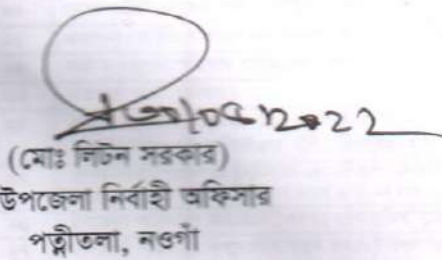 (মোঃ লিটন সরকার)
উপজেলা নির্বাহী অফিসার
পত্নীতলা, নওগাঁ